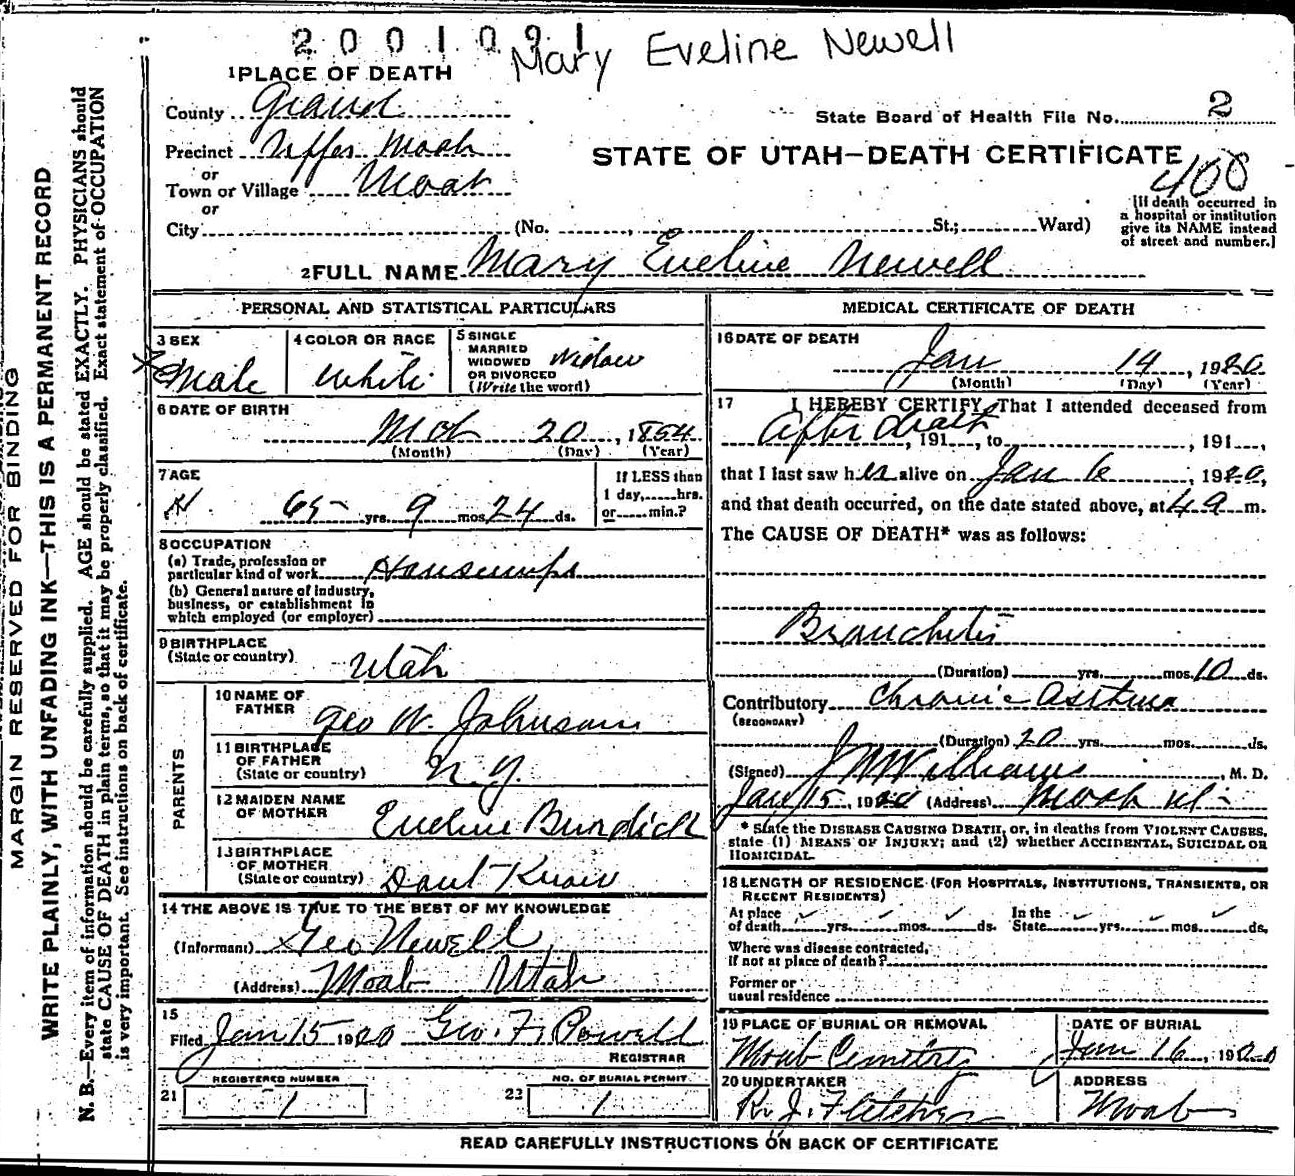 2001091
Mary Eveline Newell
1 PLACE OF DEATH
County Grand
State Board of Health File No. 2
Precinct Upper Moab
STATE OF UTAH—DEATH CERTIFICATE
or
Town or Village Moab
400
or
City (No. , St.; Ward)
[If death occurred in a hospital or institution give its NAME instead of street and number.]
2 FULL NAME Mary Eveline Newell
PERSONAL AND STATISTICAL PARTICULARS
3 SEX
Male
4 COLOR OR RACE
White
5 SINGLE
MARRIED
WIDOWED
OR DIVORCED
(Write the word)
Widow
6 DATE OF BIRTH
Mch 20, 1854
(Month) (Day) (Year)
7 AGE
65 yrs. 9 mos. 24 ds.
If LESS than
1 day, hrs.
or min.?
8 OCCUPATION
(a) Trade, profession or
particular kind of work Housewife
(b) General nature of industry,
business, or establishment in
which employed (or employer)
9 BIRTHPLACE
(State or country) Utah
PARENTS
10 NAME OF
FATHER Geo W. Johnson
11 BIRTHPLACE
OF FATHER
(State or country) N. Y.
12 MAIDEN NAME
OF MOTHER Eveline Burdick
13 BIRTHPLACE
OF MOTHER
(State or country) Dont Know
14 THE ABOVE IS TRUE TO THE BEST OF MY KNOWLEDGE
(Informant) Geo Newell
(Address) Moab Utah
15
Filed Jan 15 1920 Geo. F. Powell
REGISTRAR
REGISTERED NUMBER
21 1
NO. OF BURIAL PERMIT
22 1
MEDICAL CERTIFICATE OF DEATH
16 DATE OF DEATH
Jan 14, 1920
(Month) (Day) (Year)
17 I HEREBY CERTIFY, That I attended deceased from
After death, 191 , to , 191 ,
that I last saw her alive on Jan 6, 1920,
and that death occurred, on the date stated above, at 4 a m.
The CAUSE OF DEATH* was as follows:
Bronchitis
(Duration) yrs. mos. 10 ds.
Contributory Chronic Asthma
(SECONDARY)
(Duration) 20 yrs. mos. ds.
(Signed) J M Williams, M. D.
Jan 15, 1920 (Address) Moab Ut
* State the DISEASE CAUSING DEATH, or, in deaths from VIOLENT CAUSES,
state (1) MEANS OF INJURY; and (2) whether ACCIDENTAL, SUICIDAL OR
HOMICIDAL.
18 LENGTH OF RESIDENCE (FOR HOSPITALS, INSTITUTIONS, TRANSIENTS, OR
RECENT RESIDENTS)
At place
of death yrs. mos. ds.
In the
State yrs. mos. ds.
Where was disease contracted,
if not at place of death?
Former or
usual residence
19 PLACE OF BURIAL OR REMOVAL
Moab Cemetery
DATE OF BURIAL
Jan 16, 1920
20 UNDERTAKER
R. J. Fletcher
ADDRESS
Moab
READ CAREFULLY INSTRUCTIONS ON BACK OF CERTIFICATE
MARGIN RESERVED FOR BINDING
WRITE PLAINLY, WITH UNFADING INK—THIS IS A PERMANENT RECORD
N. B.—Every item of information should be carefully supplied. AGE should be stated EXACTLY. PHYSICIANS should
state CAUSE OF DEATH in plain terms, so that it may be properly classified. Exact statement of OCCUPATION
is very important. See instructions on back of certificate.